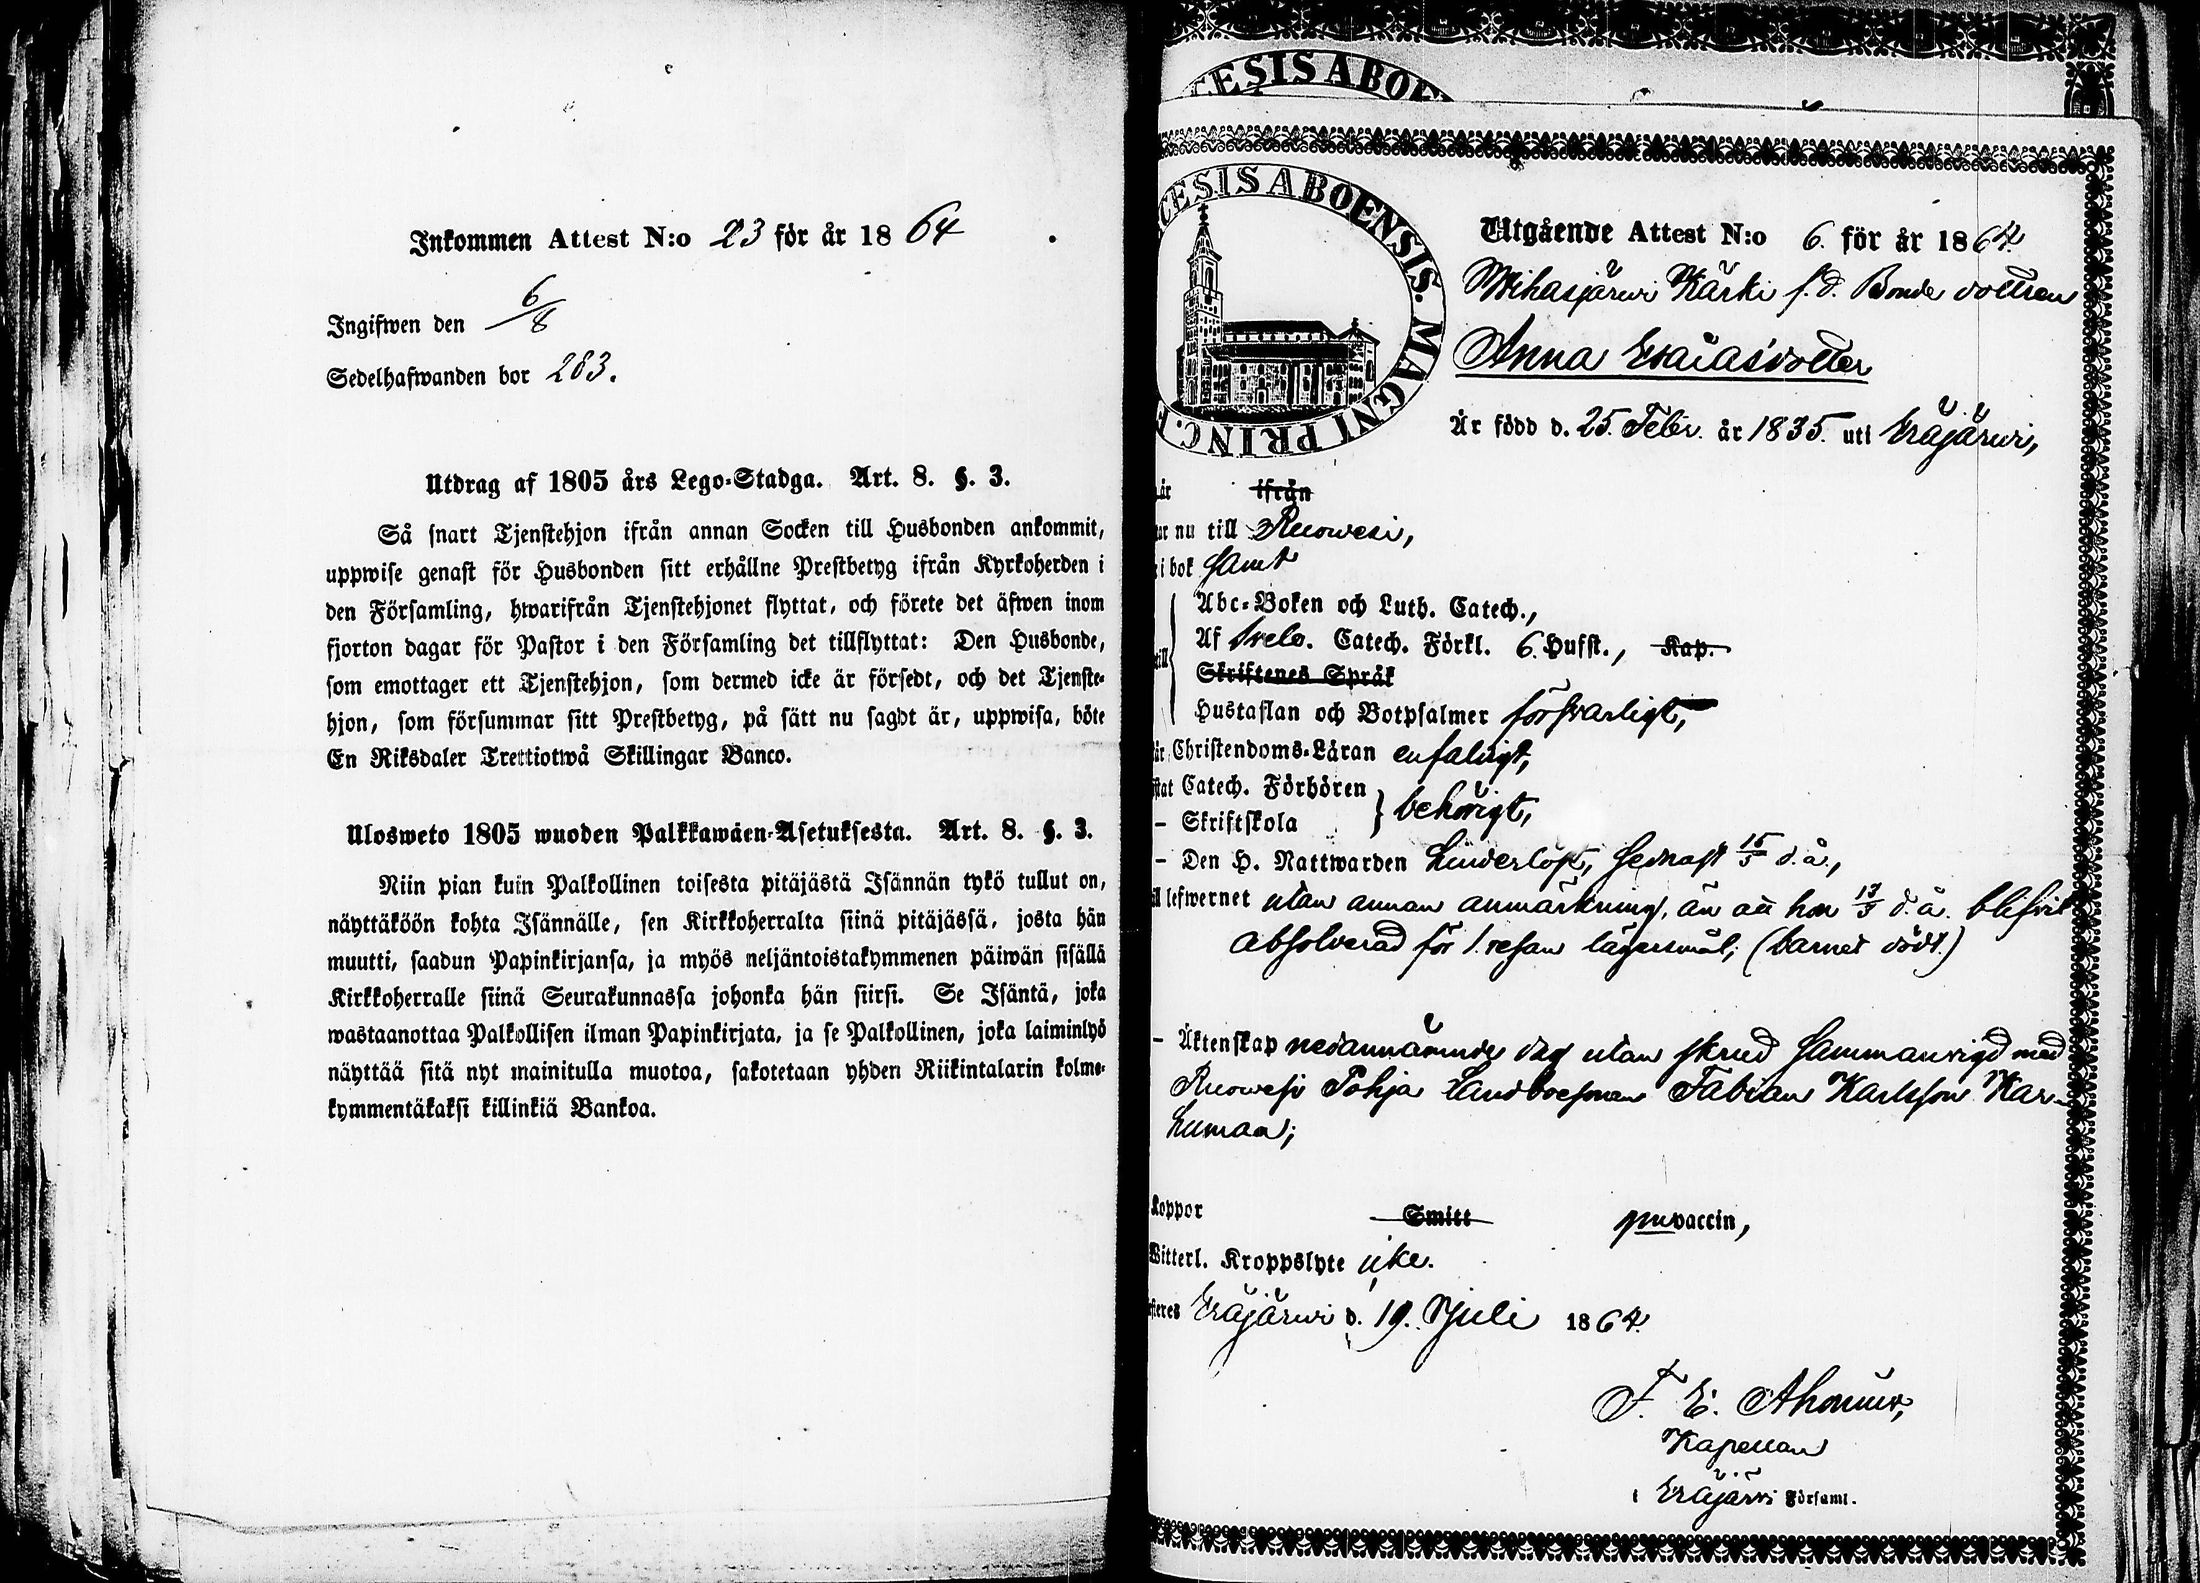 Inkommen Attest N:o 23 för år 1864
Ingifwen den 6/8
Sedelhafwanden bor 283.
Utdrag af 1805 års Lego-Stadga. Art. 8. §. 3.
Så snart Tjenstehjon ifrån annan Socken till Husbonden ankommit,
uppwise genast för Husbonden sitt erhållne Prestbetyg ifrån Kyrkoherden i
den Församling, hwarifrån Tjenstehjonet flyttat, och förete det äfwen inom
fjorton dagar för Pastor i den Församling det tillflyttat: Den Husbonde,
som emottager ett Tjenstehjon, som dermed icke är försedt, och det Tjenste-
hjon, som försummar sitt Prestbetyg, på sätt nu sagdt är, uppwisa, böte
En Riksdaler Trettiotwå Skillingar Banco.
Ulosweto 1805 wuoden Palkkawäen-Asetuksesta. Art. 8. §. 3.
Niin pian kuin Palkollinen toisesta pitäjästä Isännän tykö tullut on,
näyttäköön kohta Isännälle, sen Kirkkoherralta siinä pitäjässä, josta hän
muutti, saadun Papinkirjansa, ja myös neljäntoistakymmenen päiwän sisällä
Kirkkoherralle siinä Seurakunnassa johonka hän siirsi. Se Isäntä, joka
wastaanottaa Palkollisen ilman Papinkirjata, ja se Palkollinen, joka laiminlyö
näyttää sitä nyt mainitulla muotoa, sakotetaan yhden Riikintalarin kolme-
kymmentäkaksi killinkiä Bankoa.
CESIS ABOE
CESIS ABOENSIS. MAGNI PRINC. F
Utgående Attest N:o 6. för år 1864.
Wihasjärwi Kärki f. d. Bonde dottren
Anna Esaiasdotter
Är född d. 25. Febr. år 1835. uti Eräjärwi,
är ifrån
ar nu till Ruowesi,
i bok samt
Abc-Boken och Luth. Catech.,
Af Svebs. Catech. Förkl. 6. Hufst., Kap.
Skriftenes Språk
Hustaflan och Botpsalmer försvarligt,
Christendoms-Läran enfaldigt,
stat Catech. Förhören
– Skriftskola } behörigt,
– Den H. Nattwarden hinderlöst, sednast 15/5 d.å.,
ll lefwernet utan annan anmärkning, än att hon 13/3 d.å. blifvit
absolverad för 1. resan lägersmål; (barnet dödt.)
– Äktenskap nedannämnde dag utan skrud sammanvigd med
Ruowesi Pohja Landbosonen Fabian Karlsson Kar-
human;
Koppor Smitt vaccin,
Witterl. Kroppslyte icke.
steres Eräjärwi d. 19. Juli 1864.
F. E. Ahonius,
Kapellan
i Eräjärvi Församl.